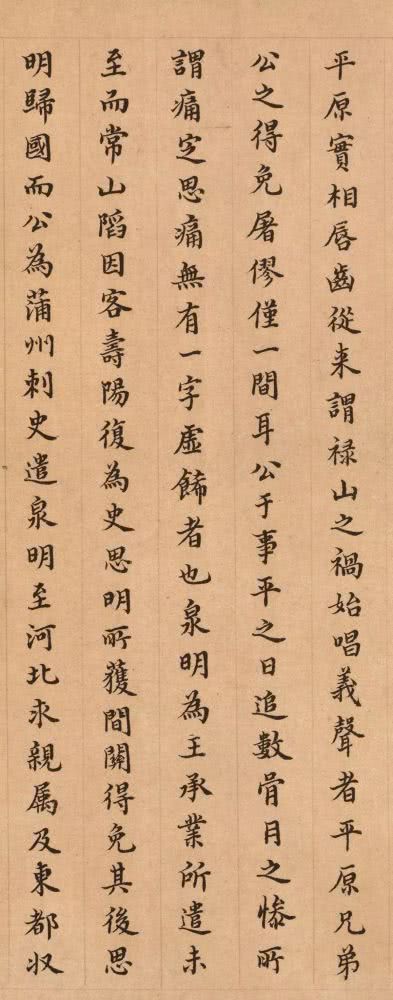 平原實相唇齒從来謂禄山之禍始唱義聲者平原兄弟
公之得免屠僇僅一間耳公于事平之日追數骨月之慘所
謂痛定思痛無有一字虛餙者也泉明為王承業所遣未
至而常山䧟因客壽陽復為史思明所獲間關得免其後思
明歸國而公為蒲州刺史遣泉明至河北求親属及東都収